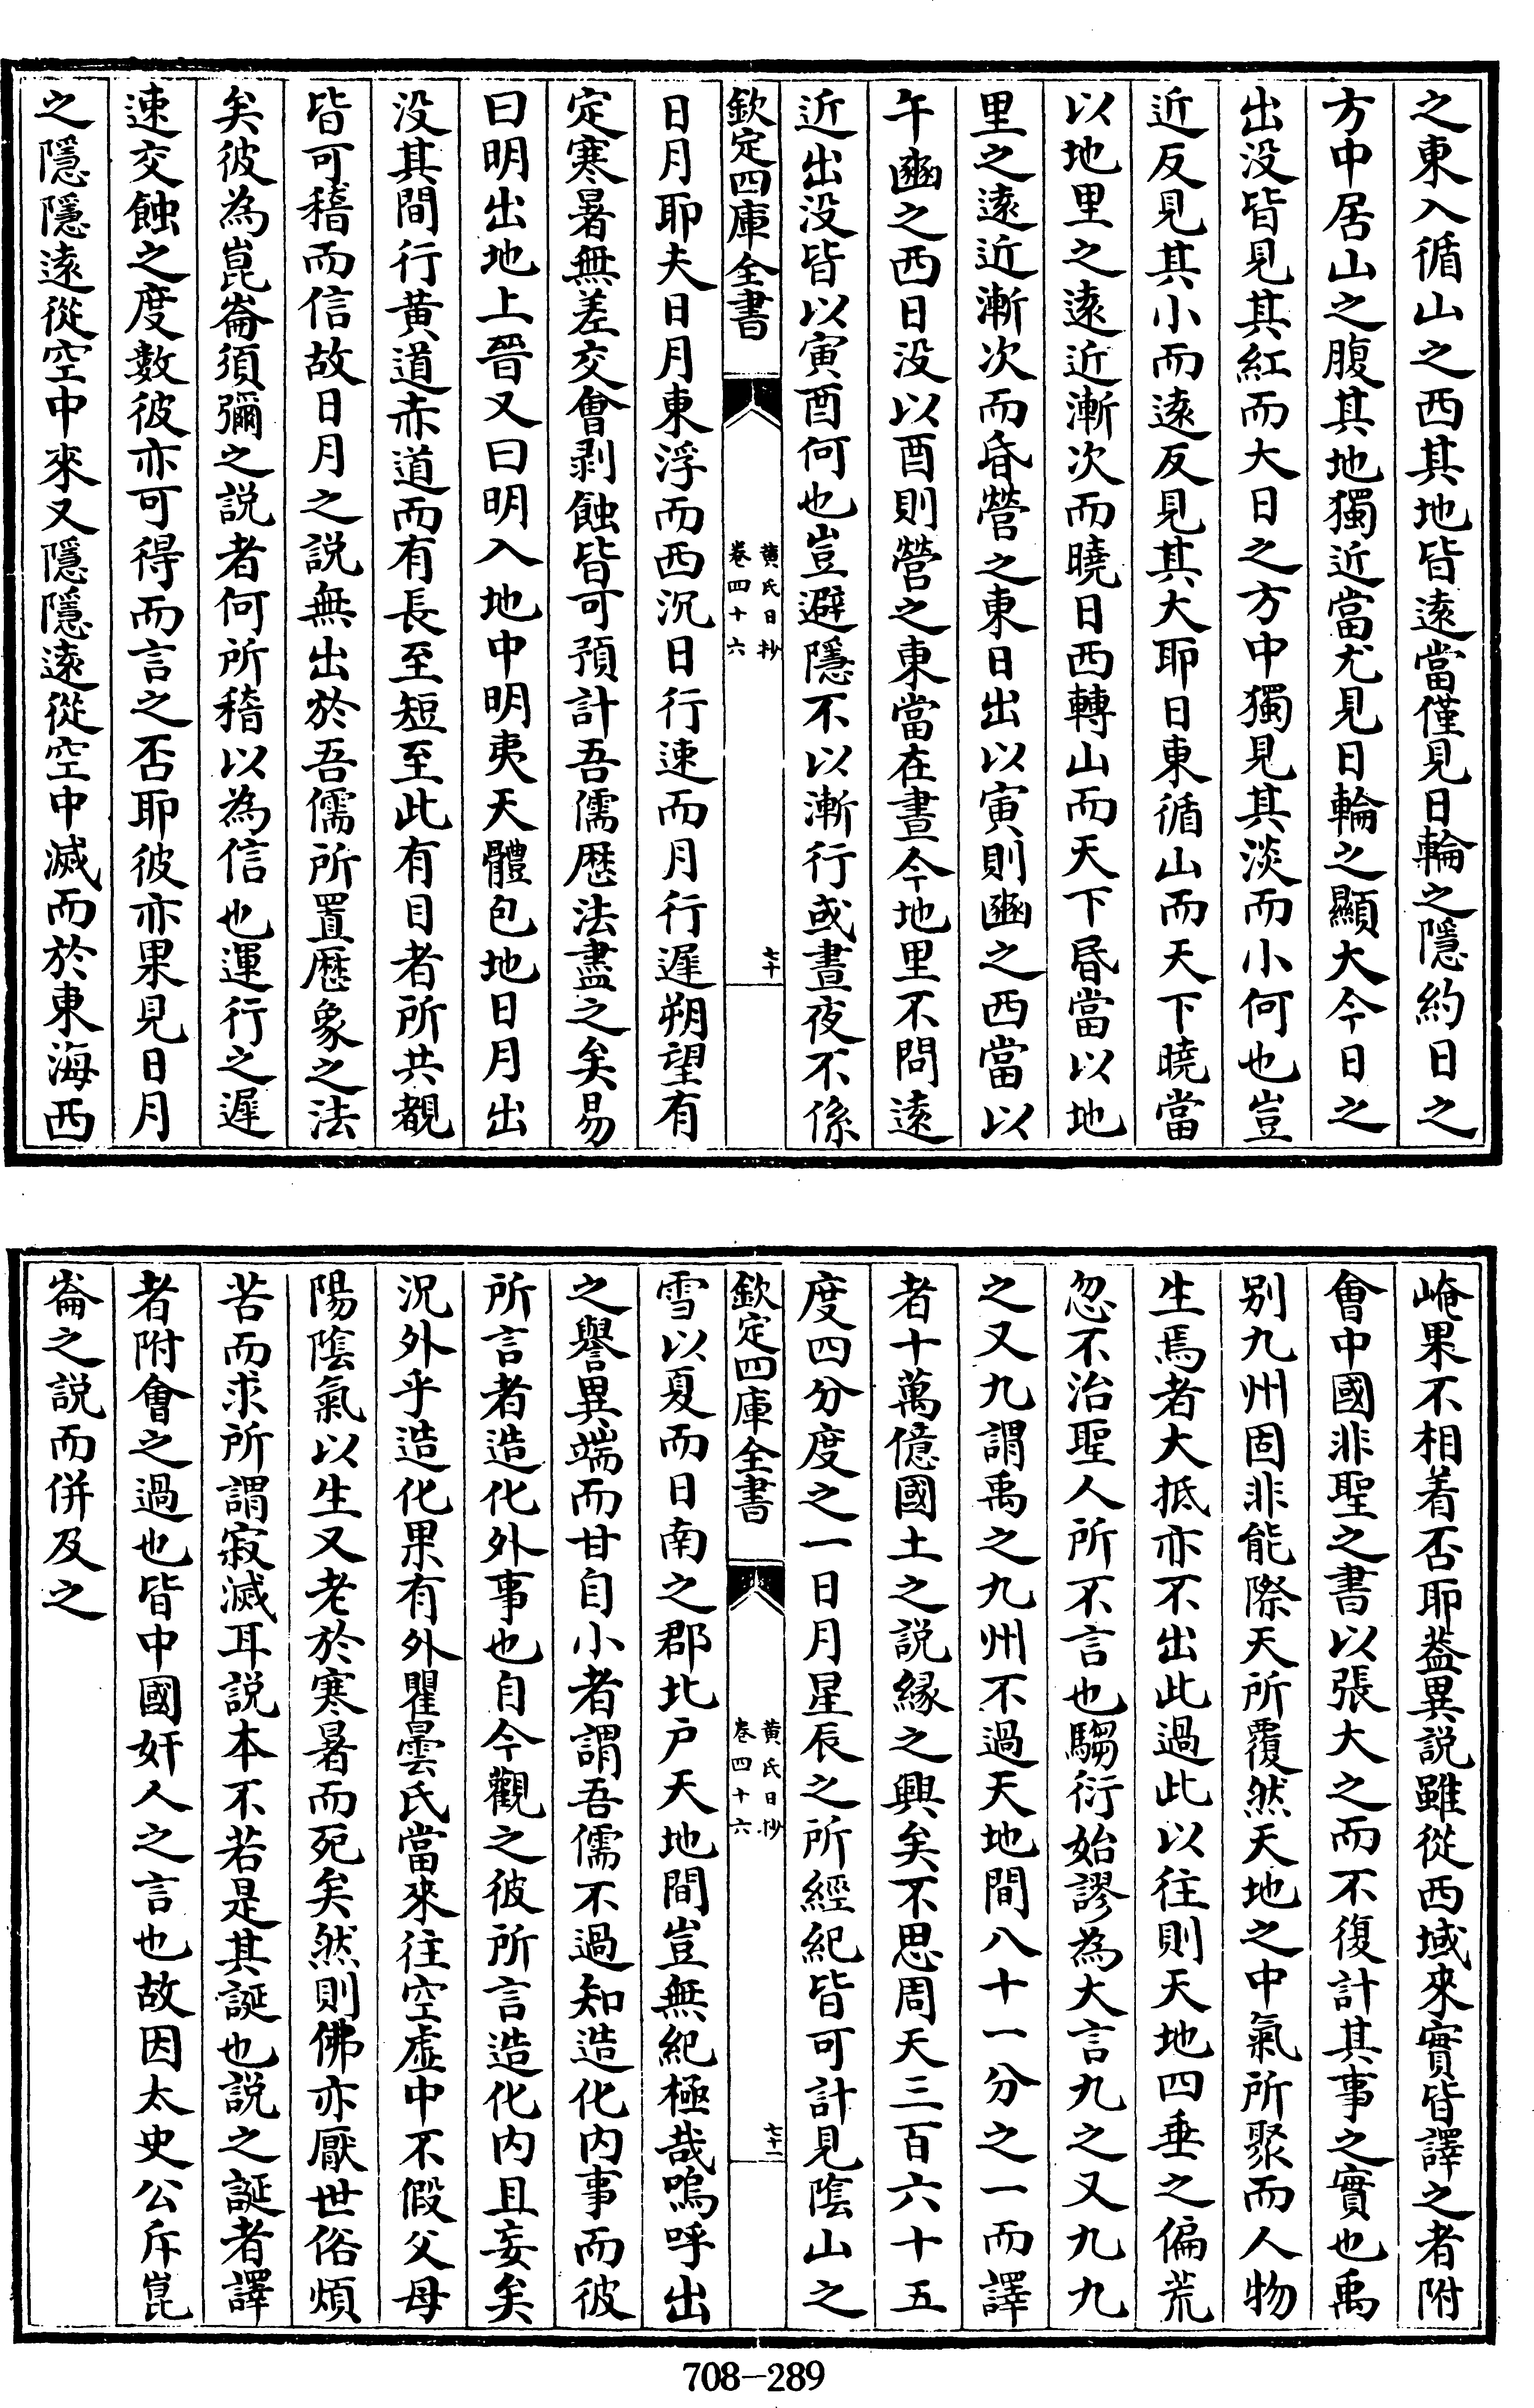 之東入循山之西其地皆遠當僅見日輪之隱約日之
方中居山之腹其地獨近當尤見日輪之顯大今日之
出没皆見其紅而大日之方中獨見其淡而小何也豈
近反見其小而遠反見其大耶日東循山而天下曉當
以地里之遠近漸次而曉日西轉山而天下昏當以地
里之遠近漸次而昏營之東日出以寅則豳之西當以
午豳之西日没以酉則營之東當在晝今地里不問遠
近出没皆以寅酉何也豈避隱不以漸行或晝夜不係
欽定四庫全書
黄氏日抄
卷四十六
七十
日月耶夫日月東浮而西沉日行速而月行遲朔望有
定寒暑無差交會剥蝕皆可預計吾儒厯法盡之矣易
曰明出地上晉又曰明入地中明夷天體包地日月出
没其間行黄道赤道而有長至短至此有目者所共覩
皆可稽而信故日月之説無出於吾儒所置厯象之法
矣彼為崑崙須彌之説者何所稽以為信也運行之遲
速交蝕之度數彼亦可得而言之否耶彼亦果見日月
之隱隱遠從空中來又隱隱遠從空中滅而於東海西
崦果不相着否耶葢異説雖從西域來實皆譯之者附
會中國非聖之書以張大之而不復計其事之實也禹
别九州固非能際天所覆然天地之中氣所聚而人物
生焉者大抵亦不出此過此以往則天地四垂之偏荒
忽不治聖人所不言也騶衍始謬為大言九之又九九
之又九謂禹之九州不過天地間八十一分之一而譯
者十萬億國土之説緣之興矣不思周天三百六十五
度四分度之一日月星辰之所經紀皆可計見隂山之
欽定四庫全書
黄氏日抄
卷四十六
七十一
雪以夏而日南之郡北户天地間豈無紀極哉嗚呼出
之譽異端而甘自小者謂吾儒不過知造化内事而彼
所言者造化外事也自今觀之彼所言造化内且妄矣
況外乎造化果有外瞿曇氏當來往空虚中不假父母
陽隂氣以生又老於寒暑而死矣然則佛亦厭世俗煩
苦而求所謂寂滅耳説本不若是其誕也説之誕者譯
者附會之過也皆中國奸人之言也故因太史公斥崑
崙之説而併及之
708-289